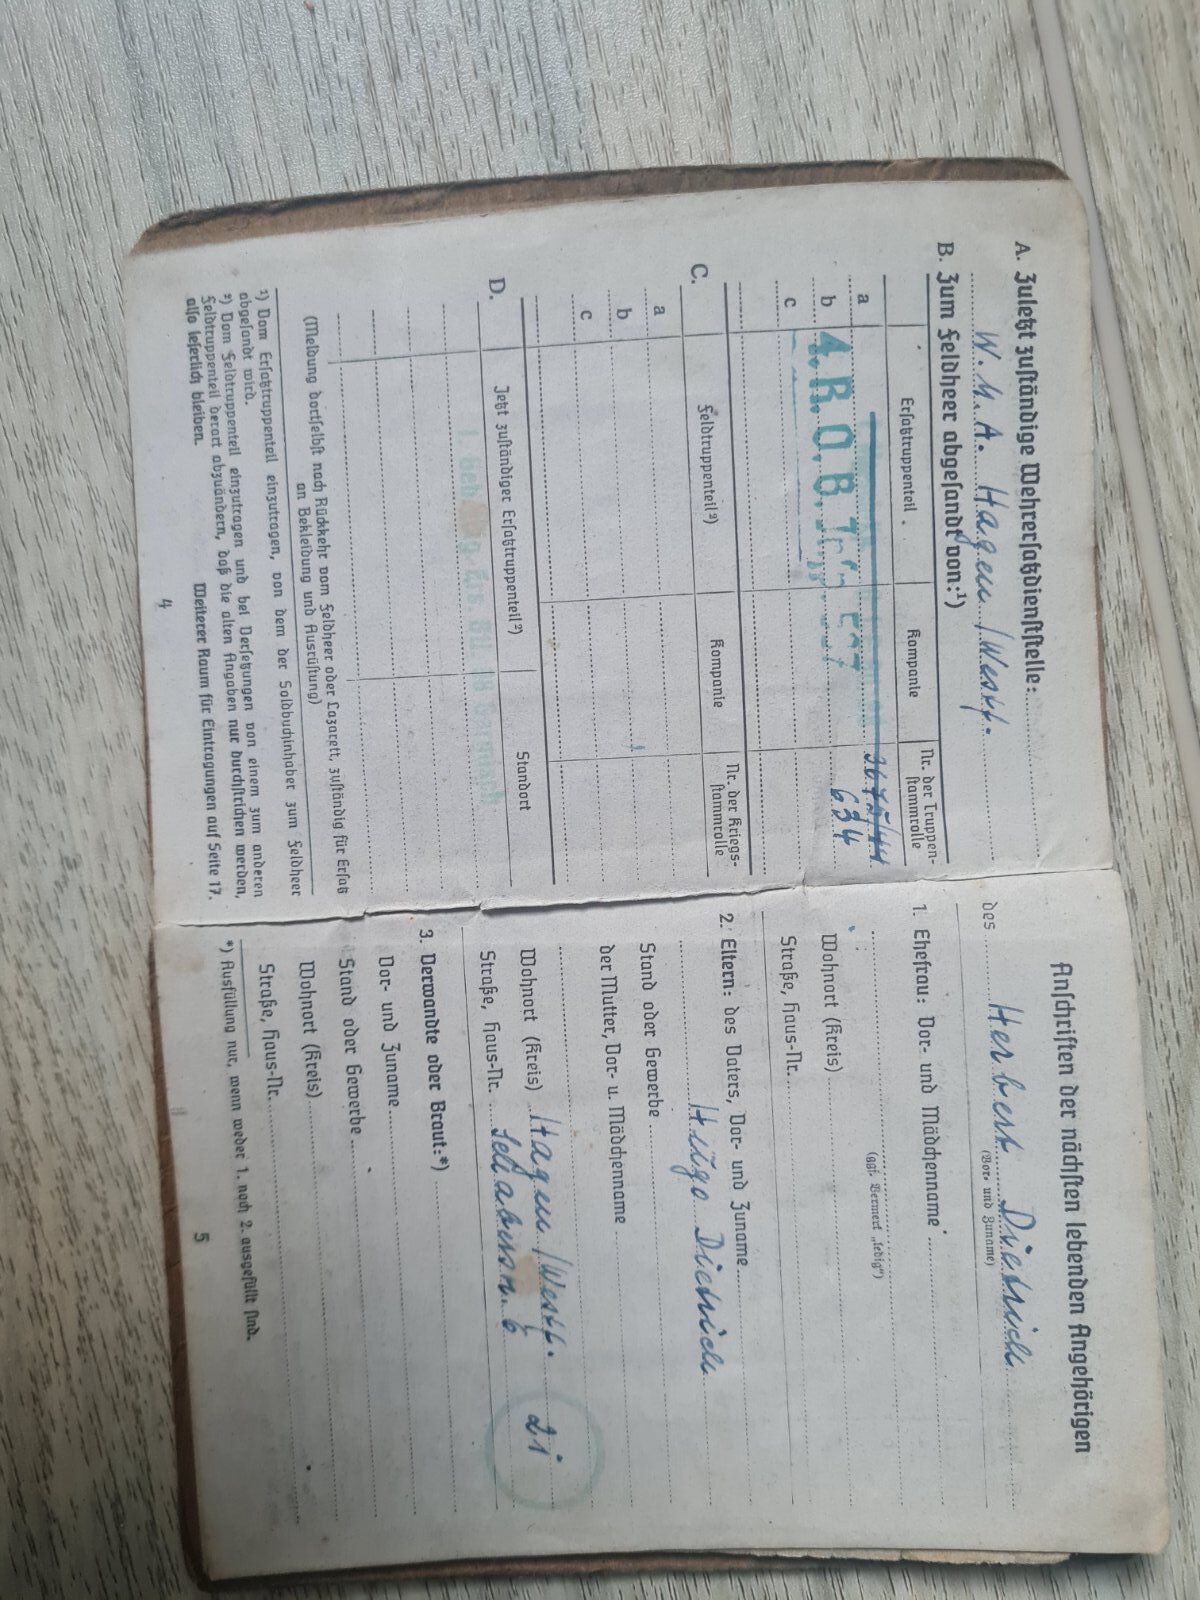 A. Zuletzt zuständige Wehrersatzdienststelle:
W. M. A. Hagen/Westf.
B. Zum Feldheer abgesandt von:¹)
Ersatztruppenteil Kompanie Nr. der Truppen-
stammrolle
a 3675/44
b 4. R. O. B. 634
c
C. Feldtruppenteil²) Kompanie Nr. der Kriegs-
stammrolle
a
b
c
D. Jetzt zuständiger Ersatztruppenteil²) Standort
(Meldung dortselbst nach Rückkehr vom Feldheer oder Lazarett, zuständig für Ersatz
an Bekleidung und Ausrüstung)
¹) Vom Ersatztruppenteil einzutragen, von dem der Soldbuchinhaber zum Feldheer
abgesandt wird.
²) Vom Feldtruppenteil einzutragen und bei Versetzungen von einem zum anderen
Feldtruppenteil derart abzuändern, daß die alten Angaben nur durchstrichen werden,
also leserlich bleiben.
Weiterer Raum für Eintragungen auf Seite 17.
4
Anschriften der nächsten lebenden Angehörigen
des Herbert Dietrich
(Vor- und Zuname)
1. Ehefrau: Vor- und Mädchenname
(ggf. Vermerk „ledig“)
Wohnort (Kreis)
Straße, Haus-Nr.
2. Eltern: des Vaters, Vor- und Zuname
Hugo Dietrich
Stand oder Gewerbe
der Mutter, Vor- u. Mädchenname
Wohnort (Kreis) Hagen/Westf. 21
Straße, Haus-Nr. 6
3. Verwandte oder Braut:*)
Vor- und Zuname
Stand oder Gewerbe
Wohnort (Kreis)
Straße, Haus-Nr.
*) Ausfüllung nur, wenn weder 1. noch 2. ausgefüllt sind.
5